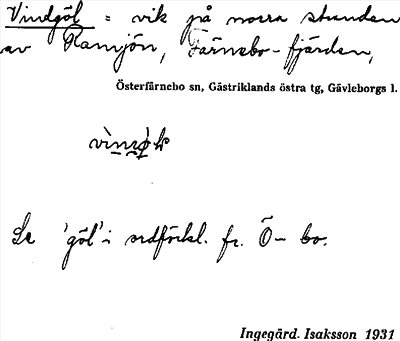 Vindgöl = vik på norra stranden
av Ramjön, Färnebo-fjärden,
Österfärnebo sn, Gästriklands östra tg, Gävleborgs l.
Se 'göl' i ordförkl. fr. Ö-bo.
Ingegärd. Isaksson 1931